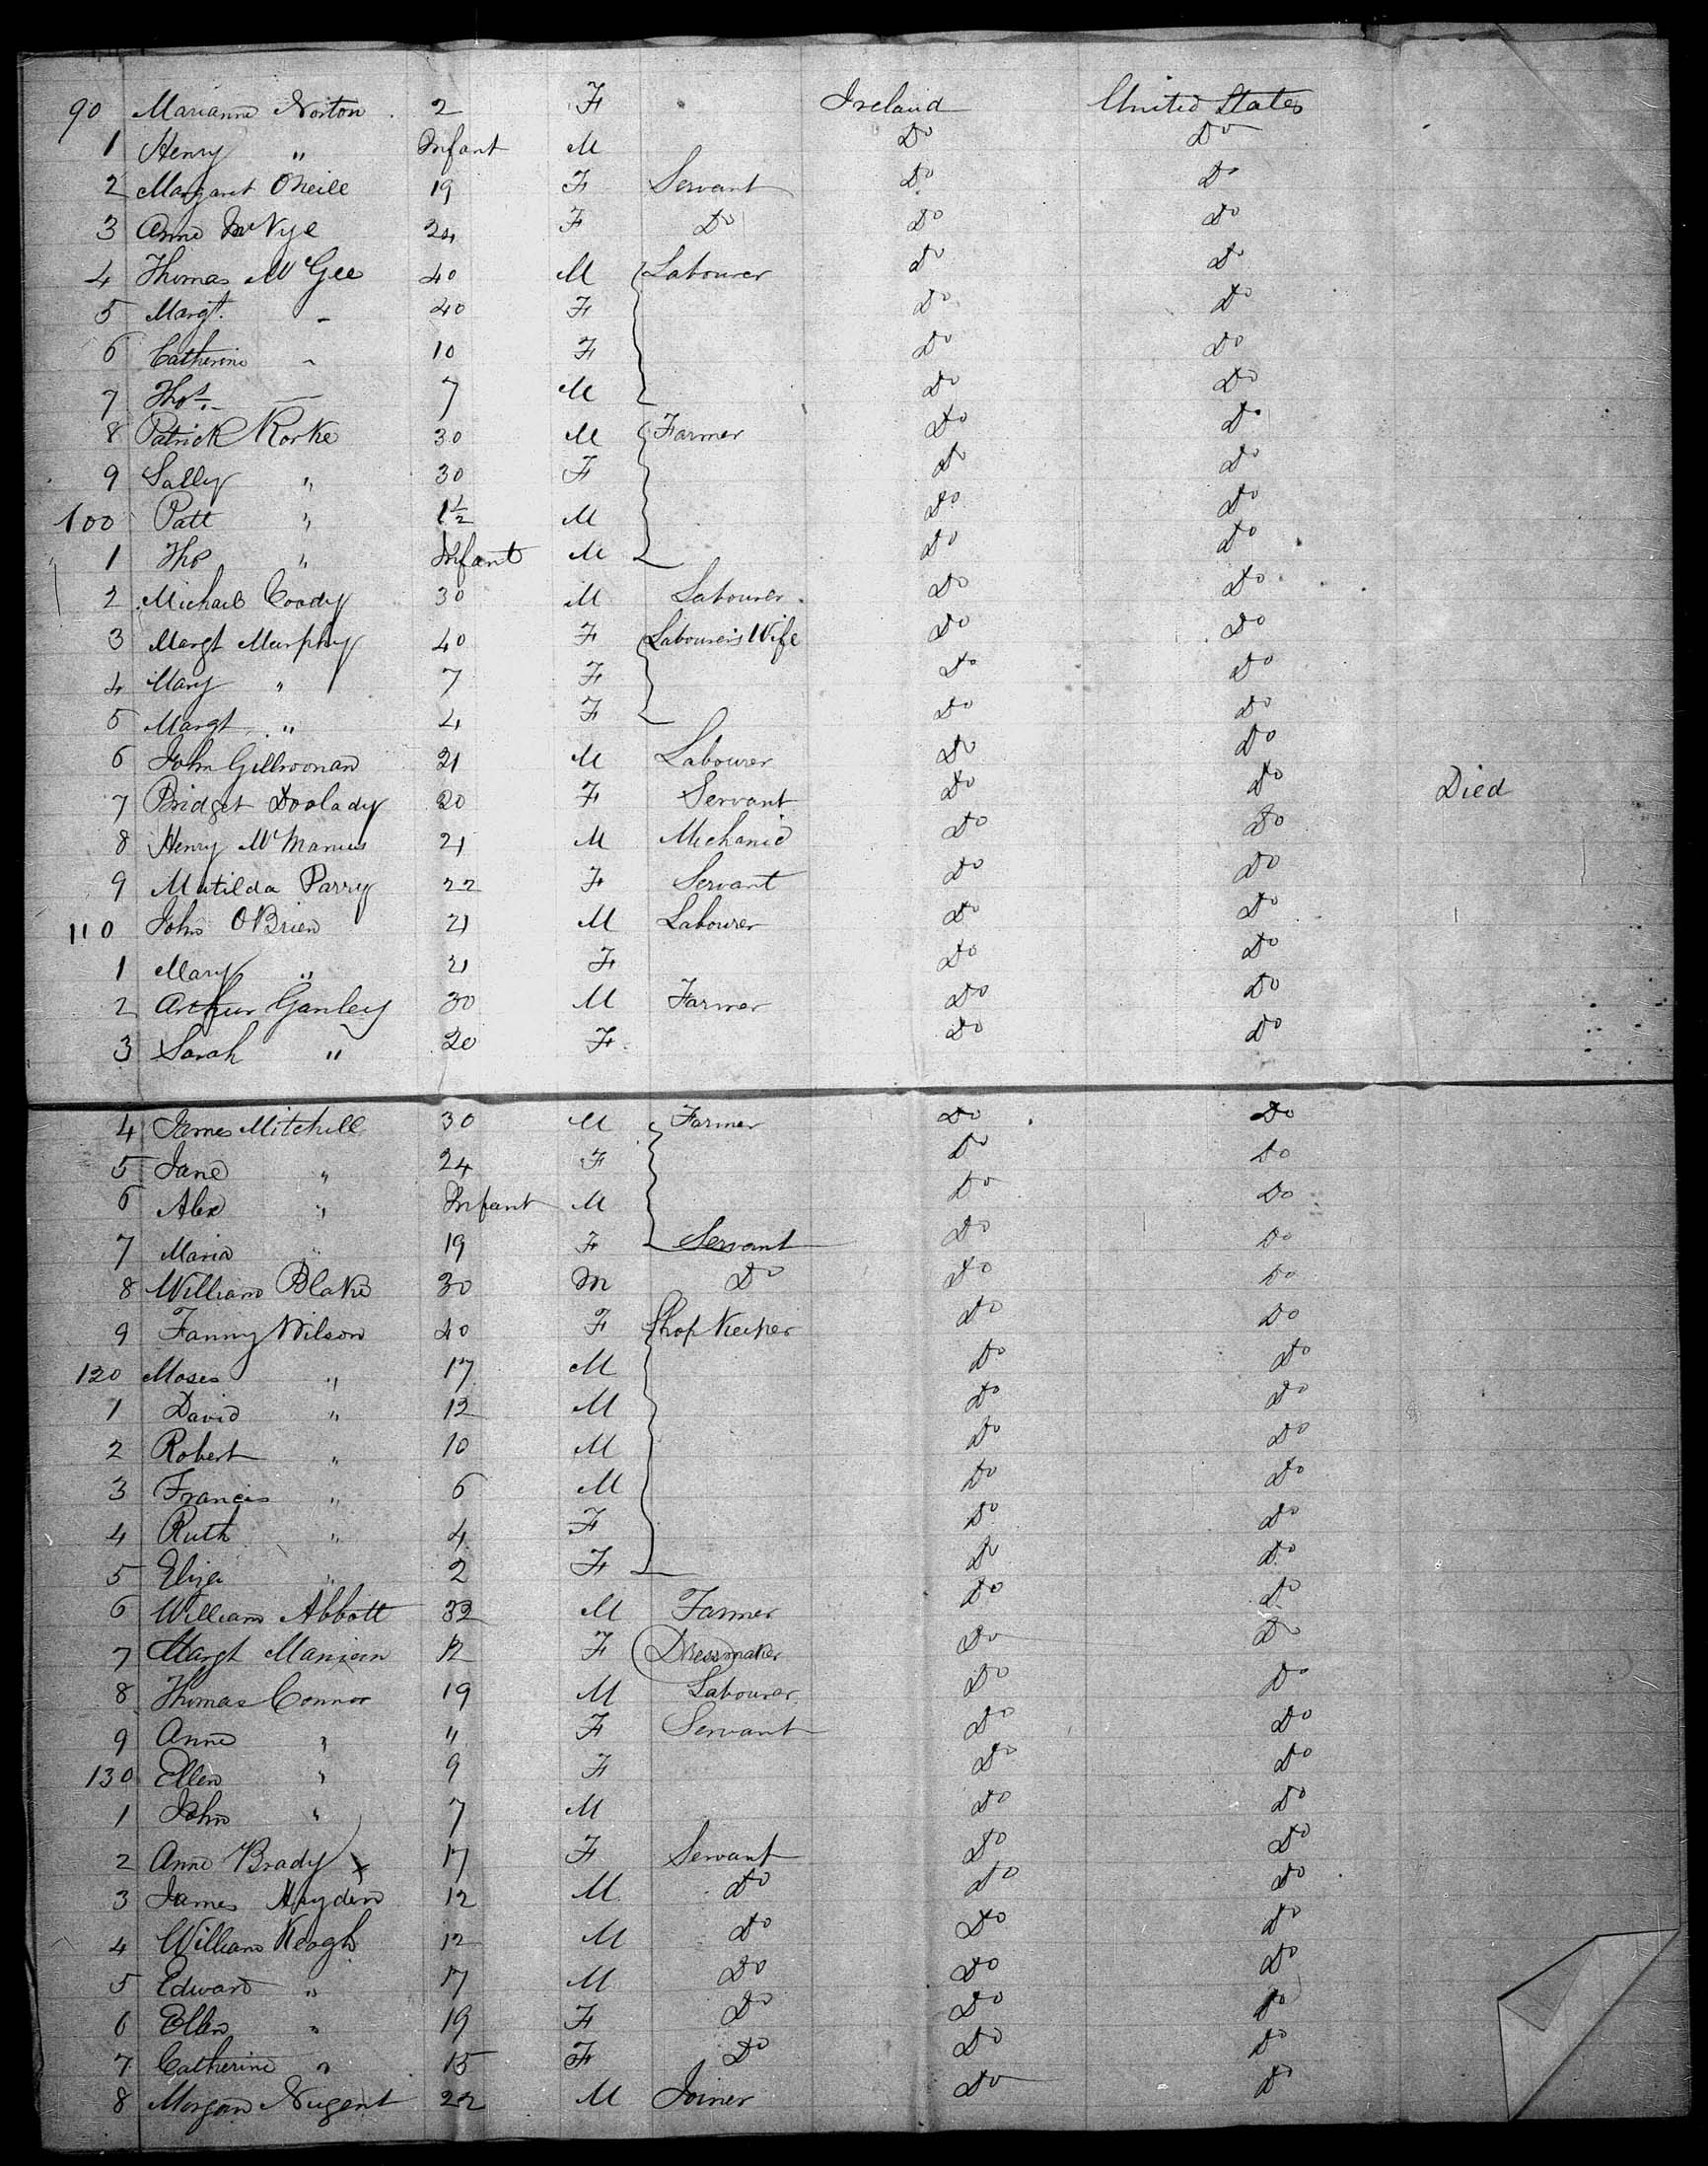 90 Marianne Norton 2 F Ireland United States
1 Henry " Infant M Do Do
2 Margaret ONeill 19 F Servant Do Do
3 Anne 24 F Do Do Do
4 Thomas McGee 40 M Labourer Do Do
5 Margt. - 40 F Do Do
6 Catherine - 10 F Do Do
7 Thos. - 7 M Do Do
8 Patrick Rorke 30 M Farmer Do Do
9 Sally " 30 F Do Do
100 Patt " 1½ M Do Do
1 Tho " Infant M Do Do
2 Michael Coady 30 M Labourer Do Do
3 Margt Murphy 40 F Labourer's Wife Do Do
4 Mary " 7 F Do Do
5 Margt " 4 F Do Do
6 John 21 M Labourer Do Do
7 Bridget Doolady 20 F Servant Do Do Died
8 Henry McManus 21 M Mechanic Do Do
9 Matilda Parry 22 F Servant Do Do
110 John OBrien 21 M Labourer Do Do
1 Mary " 21 F Do Do
2 Arthur Ganley 30 M Farmer Do Do
3 Sarah " 20 F Do Do
4 James Mitchell 30 M Farmer Do Do
5 Jane " 24 F Do Do
6 Alex " Infant M Do Do
7 Maria " 19 F Servant Do Do
8 William Blake 30 M Do Do Do
9 Fanny Wilson 40 F Shop Keeper Do Do
120 Moses " 17 M Do Do
1 David " 12 M Do Do
2 Robert " 10 M Do Do
3 Francis " 6 M Do Do
4 Ruth " 4 F Do Do
5 Eliza " 2 F Do Do
6 William Abbott 32 M Farmer Do Do
7 Margt F Dressmaker Do Do
8 Thomas Connor 19 M Labourer Do Do
9 Anne " " F Servant Do Do
130 Ellen " 9 F Do Do
1 John " 7 M Do Do
2 Anne Brady x 17 F Servant Do Do
3 James Hayden 12 M Do Do Do
4 William Keogh 12 M Do Do Do
5 Edward " 17 M Do Do Do
6 Ellen " 19 F Do Do Do
7 Catherine " 15 F Do Do Do
8 Morgan Nugent 22 M Joiner Do Do